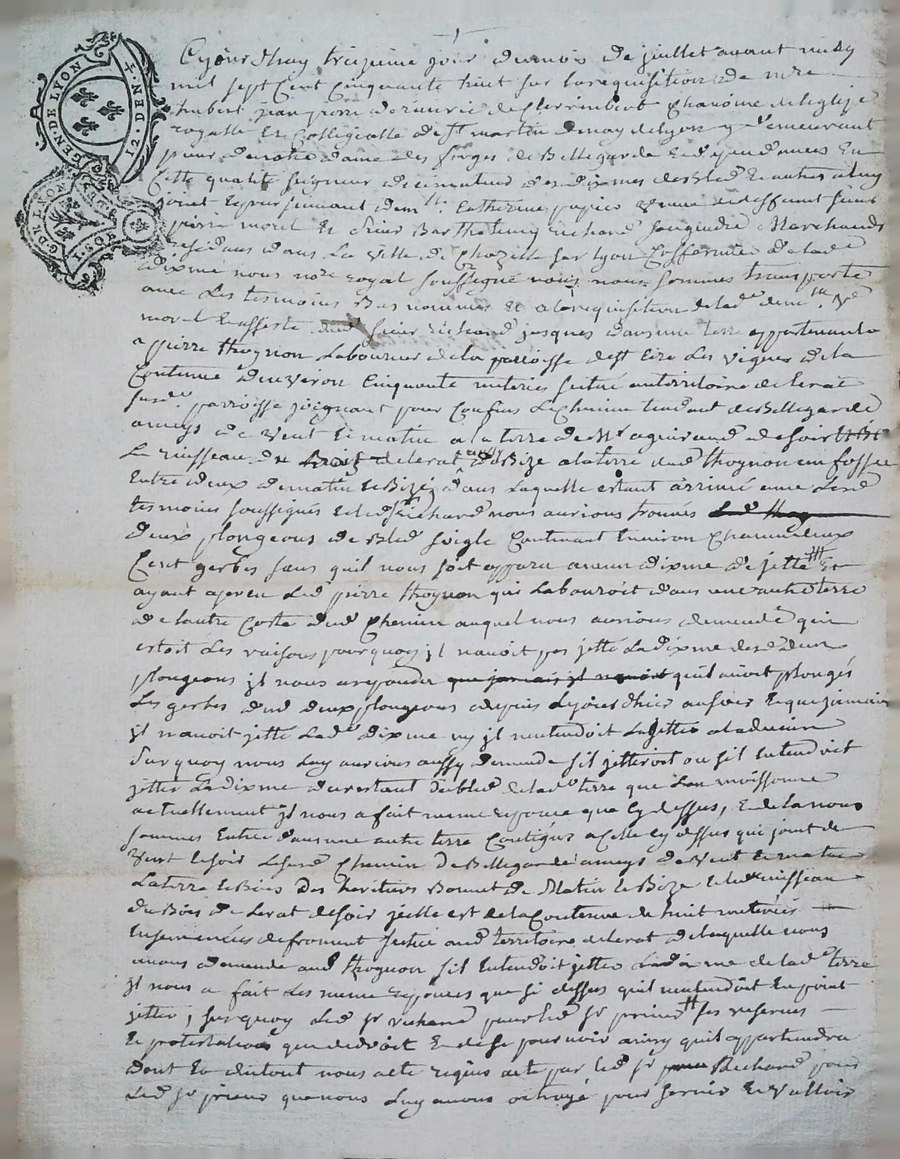 GEN. DE LYON
12. DEN. T
G. D. LYON
Cejourdhuy treizieme jour du mois de juillet avant midy
mil sept Cent Cinquante huit sur la requisition de mre
hubert jean pierre de chanoine de leglize
royalle Et Collegialle de st martin de lyon y demeurant
prieur de notre dame des forges de Bellegarde Et dependances En
Cette qualité seigneur des dixmes de Bled Et autres
Et poursuivant de Catherine veuve de deffunt sieur
pierre morel Et sieur Barthelemy richard Marchands
residans dans La ville de Chazelle sur lyon de lade
dixme nous nore royal soussigné nous sommes transporté
avec Les tesmoins Bas nommés Et a la requisition de lade ve
morel Et assisté dud sieur richard jusques dans une terre appartenante
a pierre thognon Laboureur de la parroisse de st Cire Les vignes de la
Contenue denviron Cinquante meterées scitué au territoire de lerat
susde parroisse joignant pour Confins Le Chemin tendant de Bellegarde
de vent Et matin a la terre de Mr de soir
Le ruisseau de lerat de Bize a la terre dud thognon un fossé
Entre deux de matin Et Bize dans laquelle estant arrivé avec Lesd
tesmoins soussignés Et led richard nous aurions trouvés
deux plongeons de Bled seigle Contenant Environ Chacun deux
Cent gerbes sans quil nous soit apparu aucun dixme de jetté Et
ayant aperçu Led pierre thognon qui Labouroit dans une autre terre
de lautre Costé dud Chemin auquel nous aurions demandé qui
estoit Les raisons pourquoy jl navoit pas jetté La dixme desd deux
plongeons jl nous a repondu que jamais jl navoit quil avoit plongés
Les gerbes dud deux plongeons depuis Lejourdhier au soir Et que jamais
jl navoit jetté Lade dixme ny jl nentendoit La jetter a la
Surquoy nous Luy aurions aussy demandé sil jetteroit ou sil Entendoit
jetter La dixme du restant du bled de lade terre que Lon moissonne
actuellement jl nous a fait meme reponce que Cy dessus, Et de la nous
sommes Entré dans une autre terre Contigue a Celle Cy dessus qui joint de
vent Et soir Lesusd Chemin De Bellegarde de vent Et matin
La terre Et Bois des heritiers Bonnet de Matin Et Bize Et led ruisseau
du Bois de Lerat de soir jcelle est de la Contenue de huit meterées
Ensemencées de froment scitué aud territoire de lerat de laquelle nous
avons demandé aud thognon sil Entendoit jetter La dixme de lade terre
jl nous a fait Les meme reponces que si dessus quil nentendoit En point
jetter, surquoy Led sr richard pour led sr prieur # ses reserves
Et protestations que de droit Et de se pourvoir ainsy quil appartiendra
dont Et du tout nous acte requis acte par led sr Richard pour
Led sr prieur que nous Luy avons octroyé pour servir Et valloir